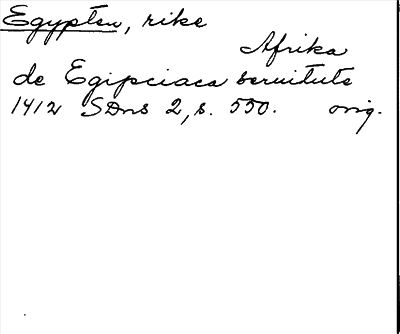 Egypten, rike
Afrika
de Egipciaca servitute
1412 SDns 2, s. 550. orig.